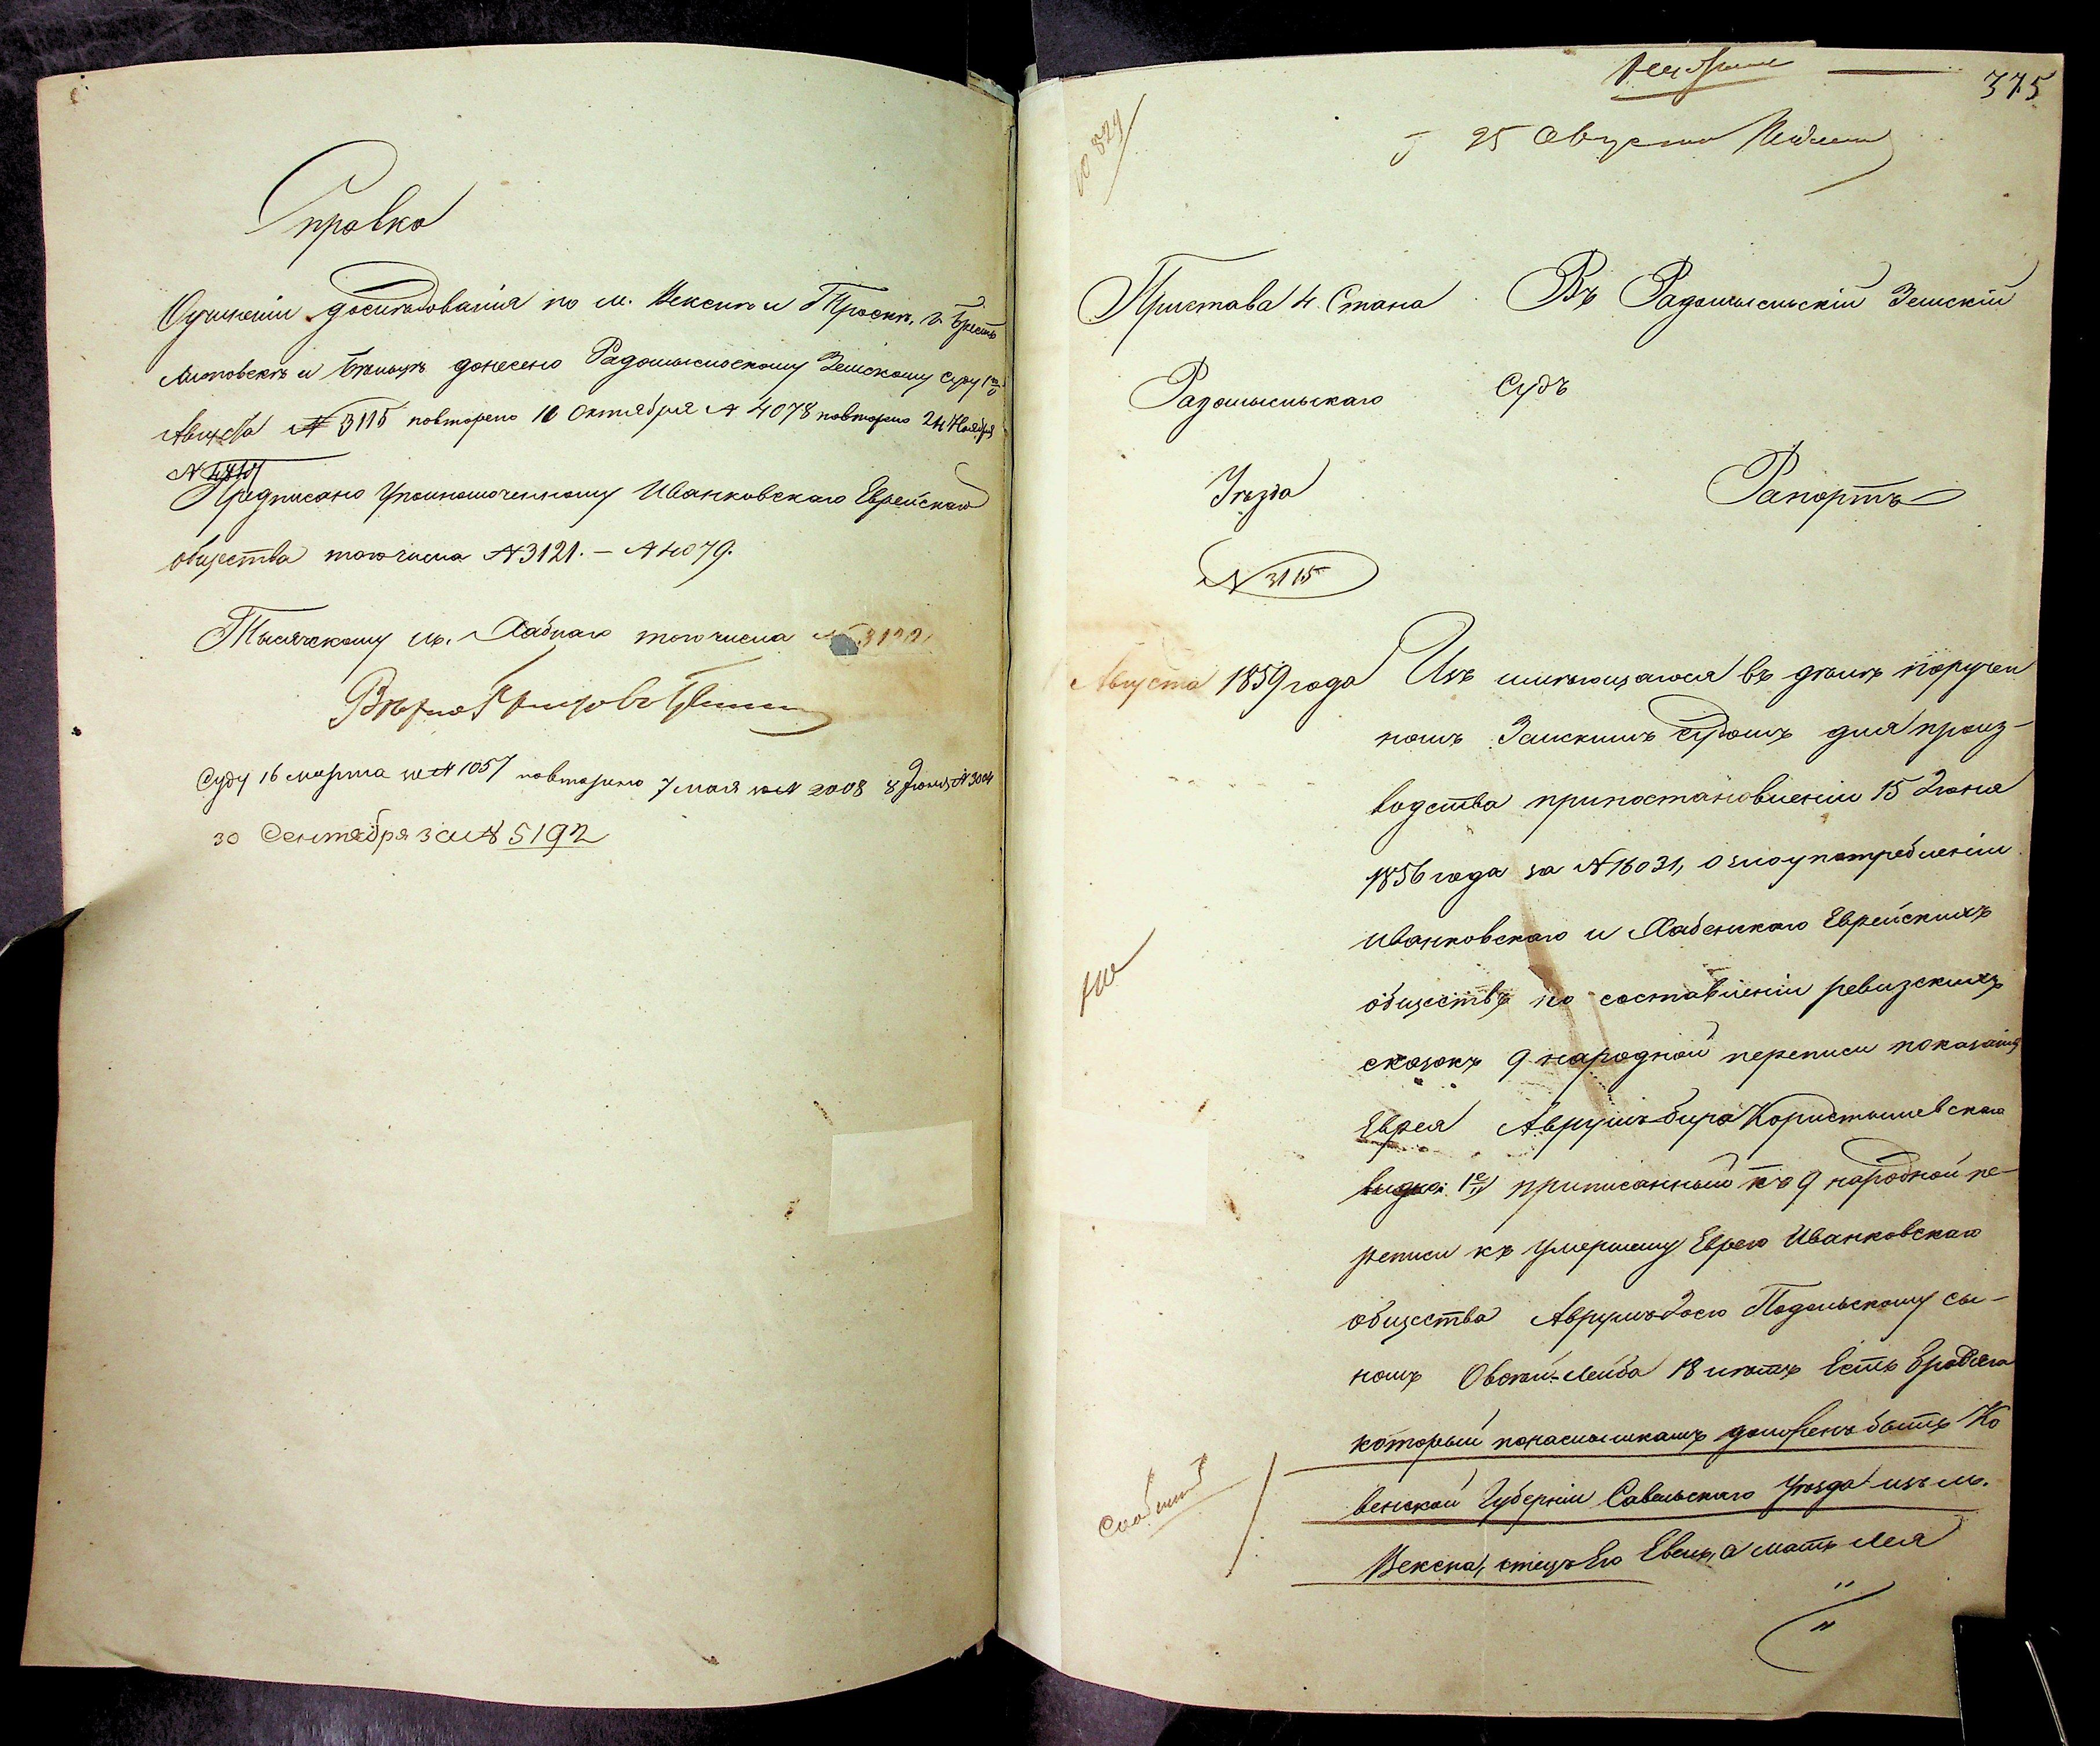 Справка
Оучиненіи дослѣдованія по м. Векснѣ и Троскн, г. Брестъ
Литовскѣ и донесено Радомысльскому Земскому Суду 1го
Августа № 3115 повторено 10 Октября № 4078 повторено 24 Ноября
№
Предписано Уполномоченному Иванковскаго Еврейскаго
общества тогожчисла № 3121. – № 4079.
Тысячскому м. Хабнаго тогочисла № 3122
Вѣрно
Суду 16 марта за № 1057 повторено 7 мая за № 2008 8 Іюля № 3004
30 Сентября за № 5192
375
25 Августа
10829
Пристава 4 Стана
Радомысльскаго
Уѣзда
№ 3115
Августа 1859 года
Въ Радомысльскій Земскій
Судъ
Рапортъ
Изъ имѣющагося въ дѣлѣ поручен
номъ Земскимъ Судомъ для произ-
водства припостановленіи 15 Іюня
1856 года за № 16031, о злоупотребленіи
Иванковскаго и Хабенскаго Еврейскихъ
обществъ по составленіи ревизскихъ
сказокъ 9 народной переписи показанія
Еврея Аврумъ-бира Користышевскаго
видно: 1е) приписанный по 9 народной пе-
реписи къ умершему Еврею Иванковскаго
общества Аврумъ Іосю Подольскому сы-
номъ Овсѣй-Лейба 18 лѣтъ есть бродяга
который понаслышкамъ долженъ быть Ко
венской Губерніи Савельскаго Уѣзда изъ м.
Вексна, отецъ Его Евель, а мать Лея